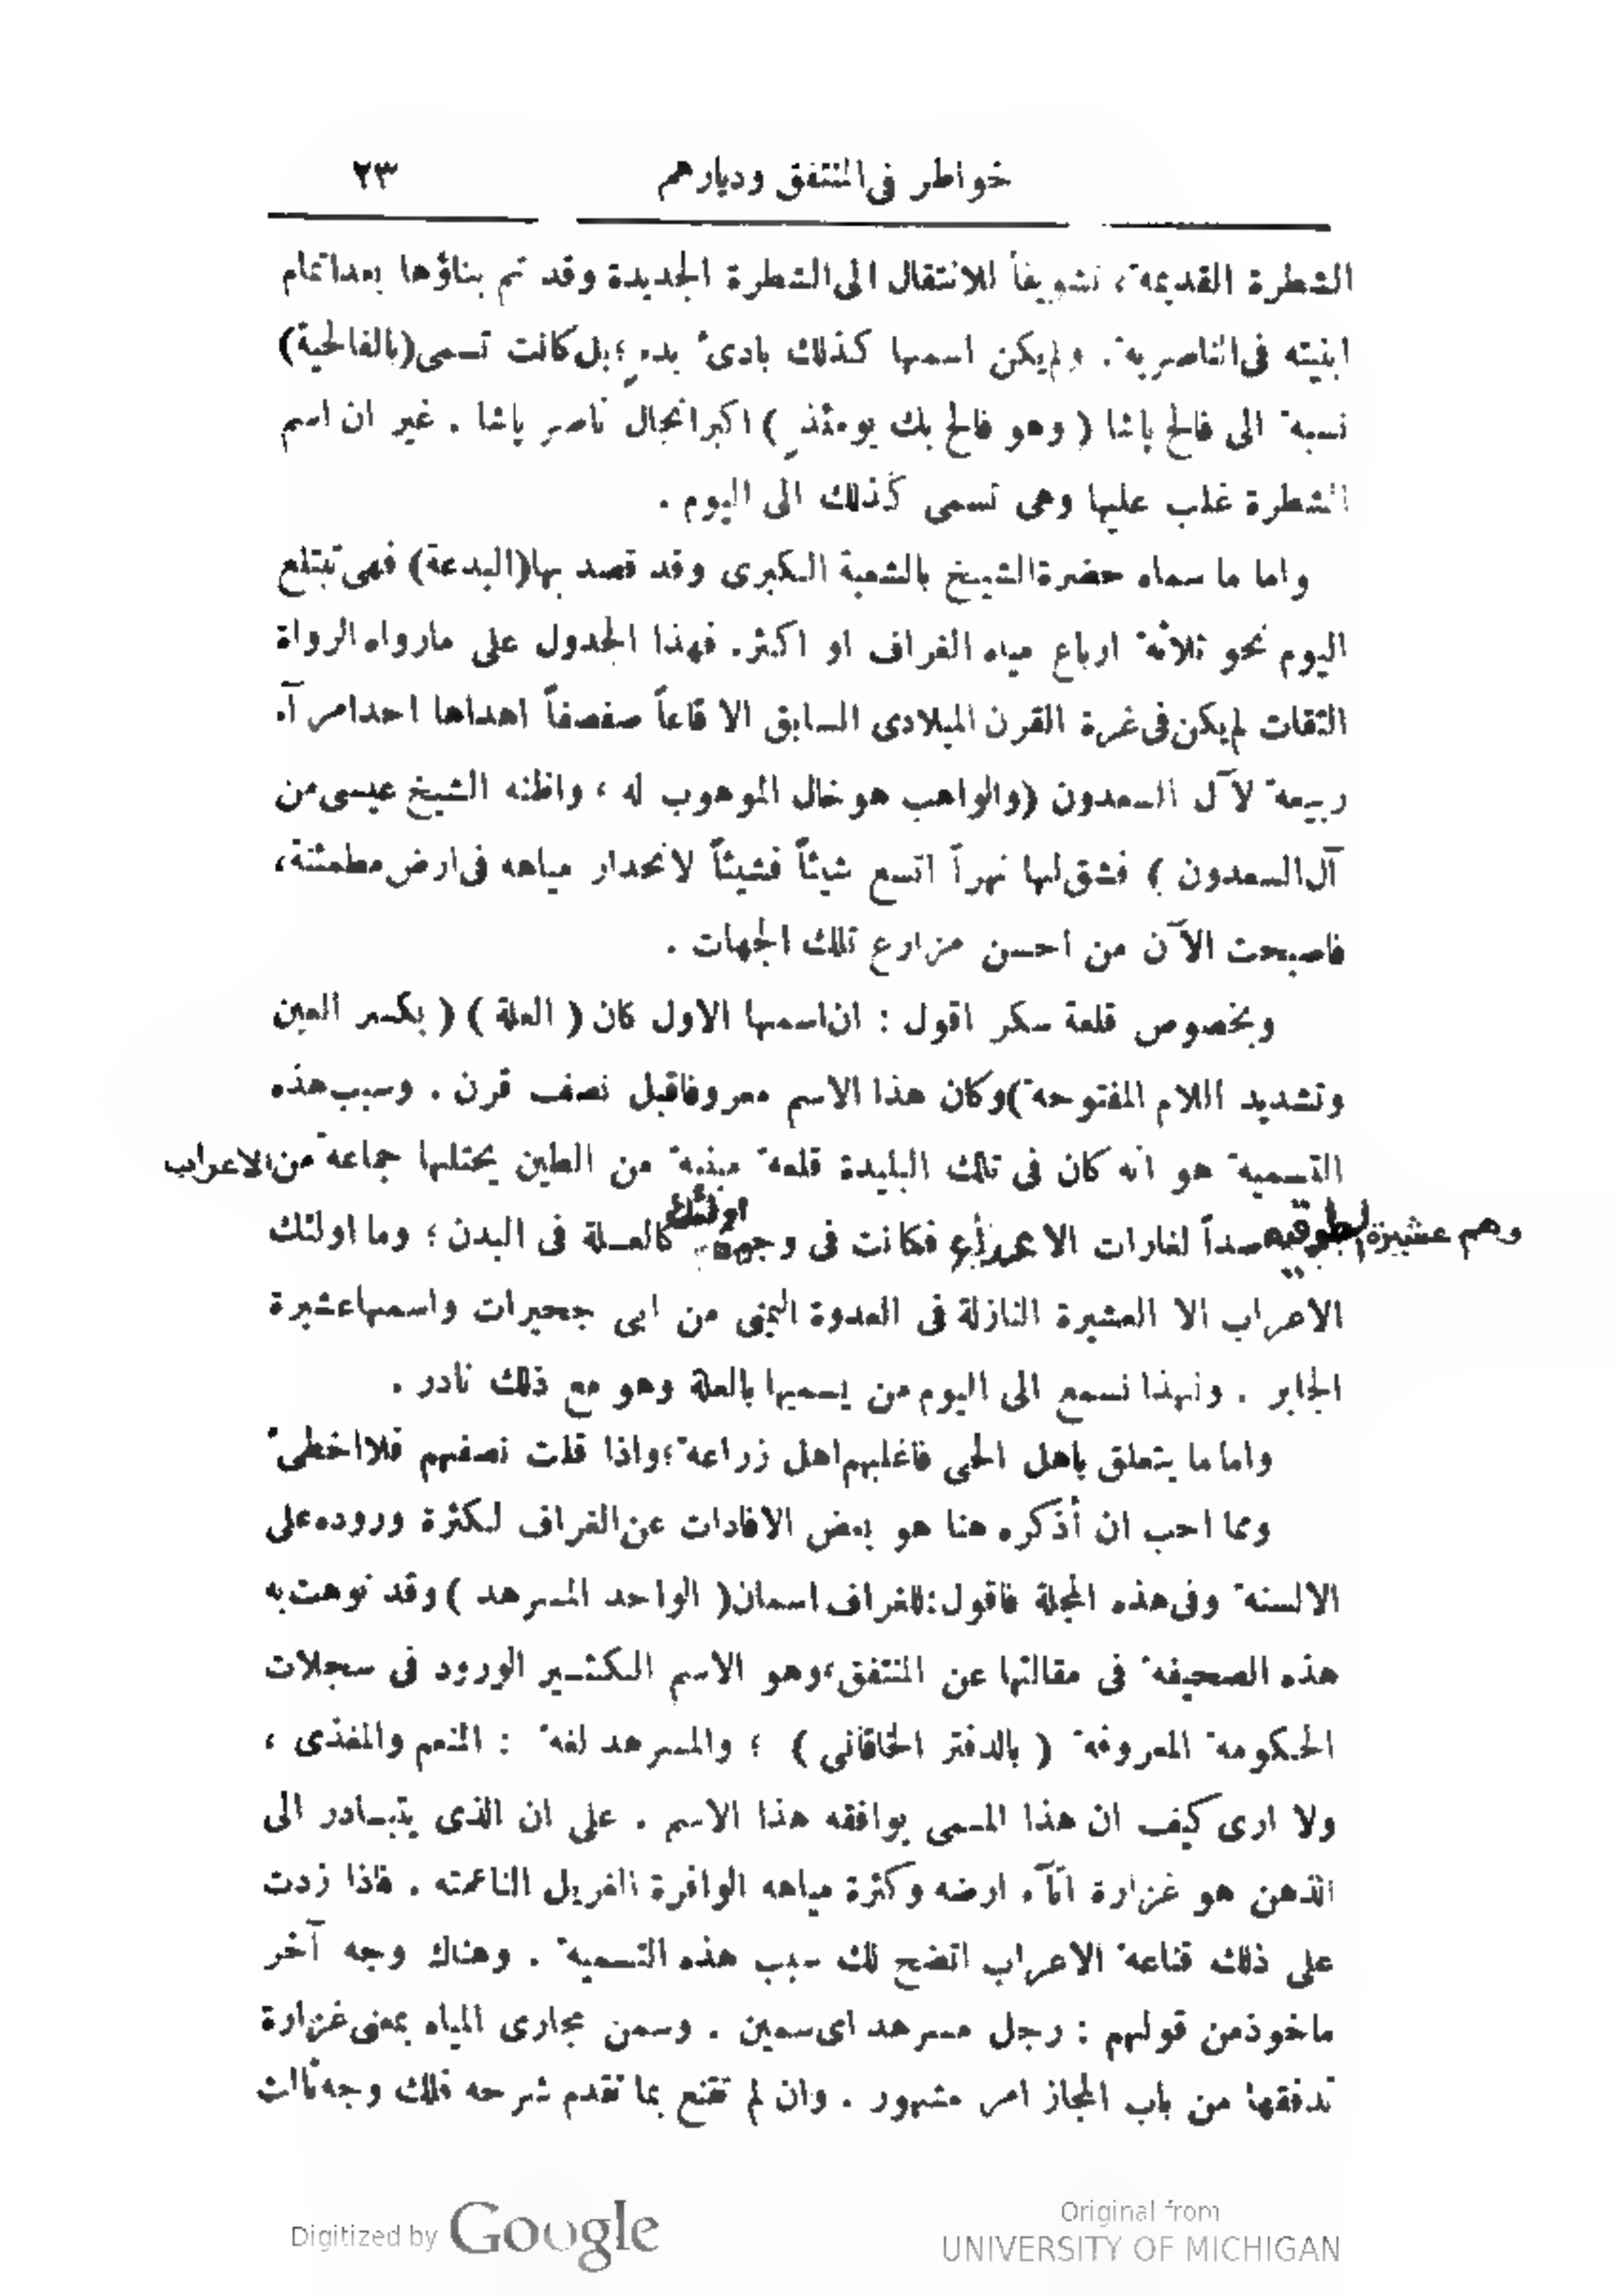 خواطر فى المنتفق وديارهم ٢٣
الشطرة القديمة، تشويقاً للانتقال الى الشطرة الجديدة وقد تم بناؤها بعد اتمام
ابنيته فى الناصرية. ولم يكن اسمها كذلك بادئ بدء؛ بل كانت تسمى (بالفالحية)
نسبة الى فالح باشا ( وهو فالح بك يومئذٍ ) اكبر انجال ناصر باشا . غير ان اسم
الشطرة غلب عليها وهى تسمى كذلك الى اليوم .
واما ما سماه حضرة الشيخ بالشعبة الكبرى وقد قصد بها (البدعة) فهى تبتلع
اليوم نحو ثلاثة ارباع مياه الغراف او اكثر. فهذا الجدول على مارواه الرواة
الثقات لم يكن فى غرة القرن الميلادى السابق الا قاعاً صفصفاً اهداها احد امرآء
ربيعة لآل السعدون (والواهب هو خال الموهوب له ، واظنه الشيخ عيسى من
آل السعدون ) فشق لها نهراً اتسع شيئاً فشيئاً لانحدار مياهه فى ارض مطمئنة،
فاصبحت الآن من احسن مزارع تلك الجهات .
وبخصوص قلعة سكر اقول : ان اسمها الاول كان ( العلة ) ( بكسر العين
وتشديد اللام المفتوحة) وكان هذا الاسم معروفا قبل نصف قرن . وسبب هذه
التسمية هو انه كان فى تلك البليدة قلعة مبنية من الطين يحتلها جماعة من الاعراب
وهم عشيرة الطوقيه صداً لغارات الاعراب فكانت فى وجه اولئك كالعلة فى البدن ؛ وما اولئك
الاعراب الا العشيرة النازلة فى العدوة اليمنى من ابى جحيرات واسمها عشيرة
الجابر . ولهذا نسمع الى اليوم من يسميها بالعلة وهو مع ذلك نادر .
واما ما يتعلق باهل الحى فاغلبهم اهل زراعة؛ واذا قلت نصفهم فلا اخطئ
ومما احب ان أذكره هنا هو بعض الافادات عن الغراف لكثرة وروده على
الالسنة وفى هذه المجلة فاقول: للغراف اسمان ( الواحد المسرهد ) وقد نوهت به
هذه الصحيفة فى مقالتها عن المنتفق، وهو الاسم الكثير الورود فى سجلات
الحكومة المعروفة ( بالدفتر الخاقانى ) ؛ والمسرهد لغة : المنعم والمغذى ،
ولا ارى كيف ان هذا المسمى يوافقه هذا الاسم . على ان الذى يتبادر الى
الذهن هو غزارة انمآء ارضه وكثرة مياهه الوافرة الغريل الناعمته . فاذا زدت
على ذلك قناعة الاعراب اتضح لك سبب هذه التسمية . وهناك وجه آخر
ماخوذ من قولهم : رجل مسرهد اى سمين . وسمن مجارى المياه بمعنى غزارة
تدفقها من باب المجاز امر مشهور . وان لم تقنع بما تقدم شرحه فلك وجه ثالث
Digitized by Google
Original from
UNIVERSITY OF MICHIGAN